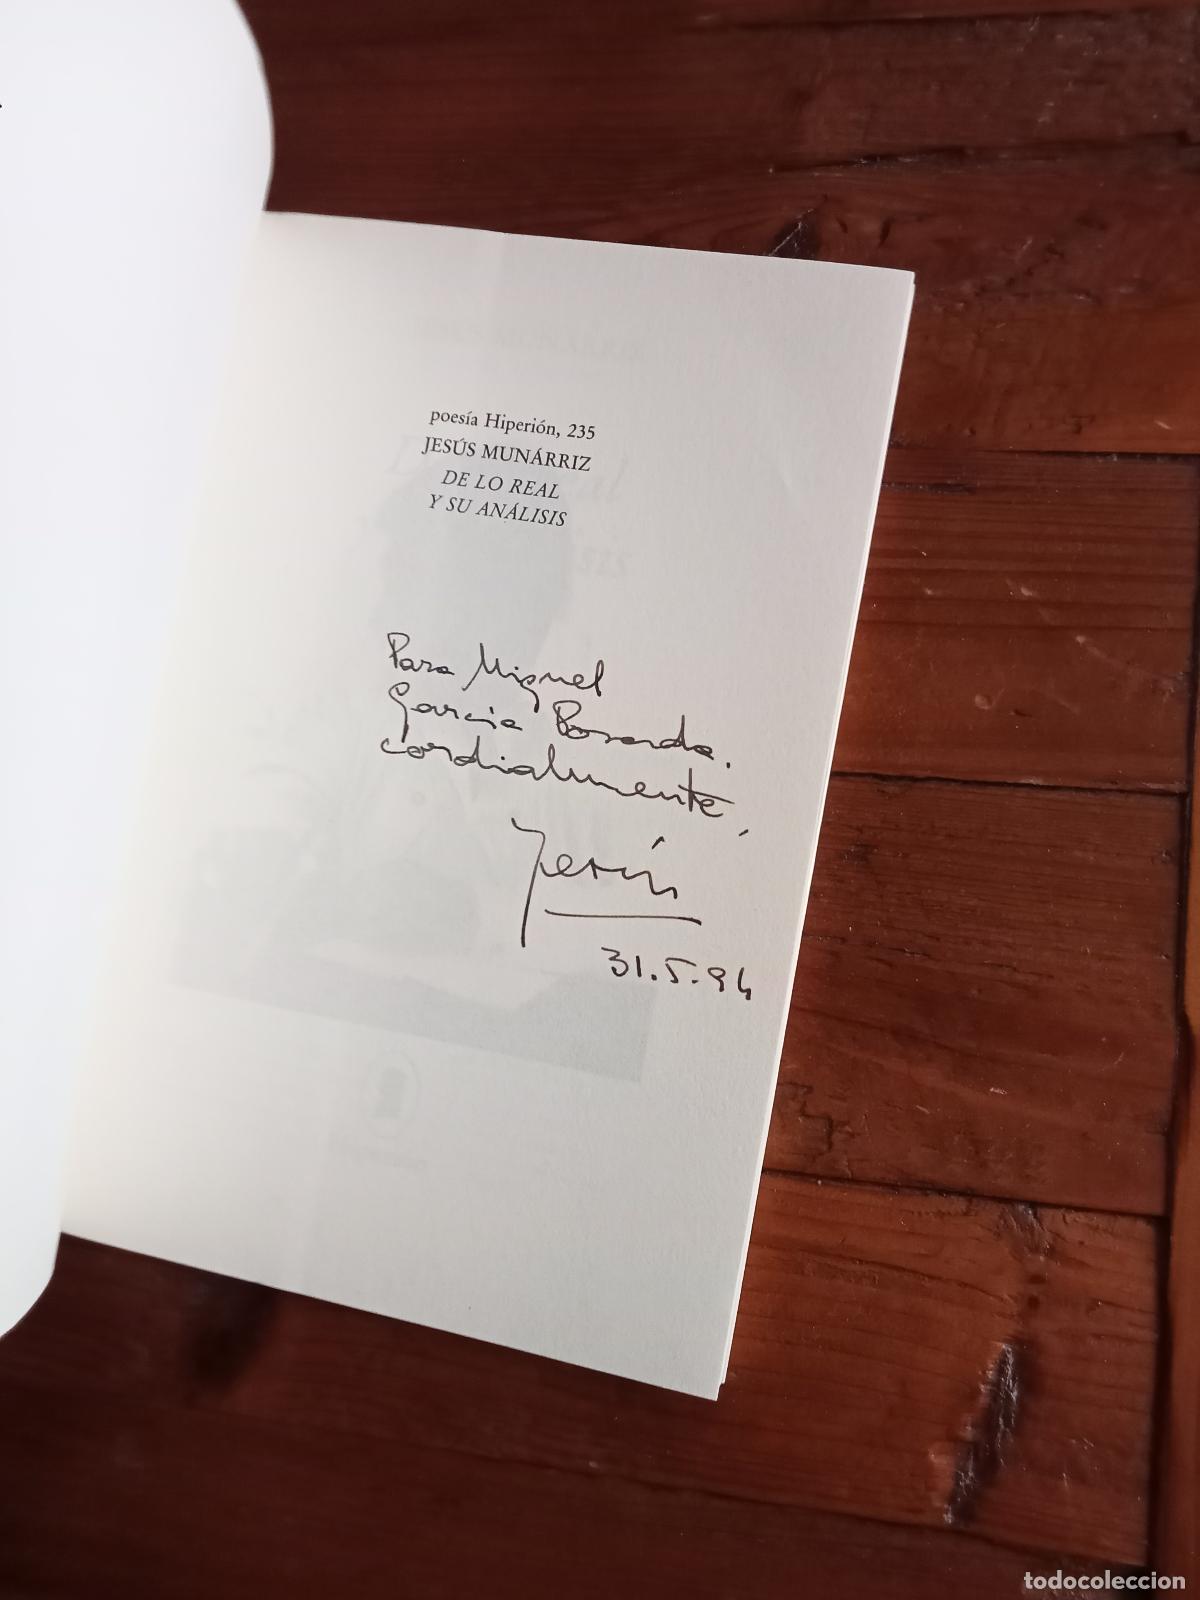 poesía Hiperión, 235
JESÚS MUNÁRRIZ
DE LO REAL
Y SU ANÁLISIS
Para Miguel
García Posada.
cordialmente,
Jesús
31.5.94
todocoleccion